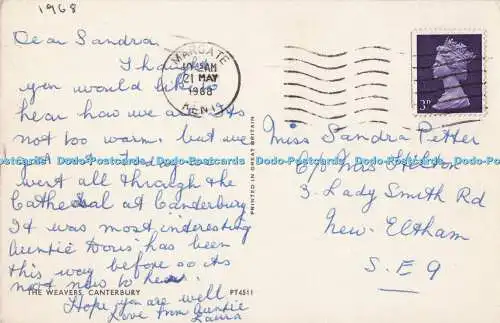 1968
Dear Sandra
I
you would like to
hear how we are. Its
not too warm. but we
Today we
went all through the
Cathedral at Canderbury
It was most interesting
Auntie Doris has been
this way before so its
not new to her.
Hope you are well
Love from Auntie
Laura
MARGATE
AM
21 MAY
1968
KENT
3D
Miss Sandra Petter
C/o Mrs
3. Lady Smith Rd
New. Eltham
S.E 9
PRINTED IN GREAT BRITAIN
THE WEAVERS, CANTERBURY
PT4511
Postcards Dodo-Postcards Dodo-Postcards Dodo-Postcards Dodo-Postcards Dodo-Postcards